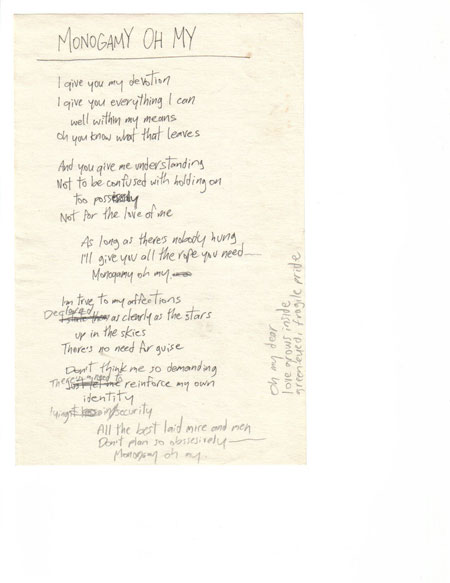 MONOGAMY OH MY
I give you my devotion
I give you everything I can
well within my means
Oh you know what that leaves
And you give me understanding
Not to be confused with holding on
too
Not for the love of me
As long as there's nobody hung
I'll give you all the rope you need
Monogamy oh my
I'm true to my affections
Declared
as clearly as the stars
up in the skies
There's no need for guise
Don't think me so demanding
There's no need to
reinforce my own
identity
security
All the best laid mice and men
Don't plan so obsessively
Monogamy oh my
Oh my dear
love grows inside
green eyed, fragile pride